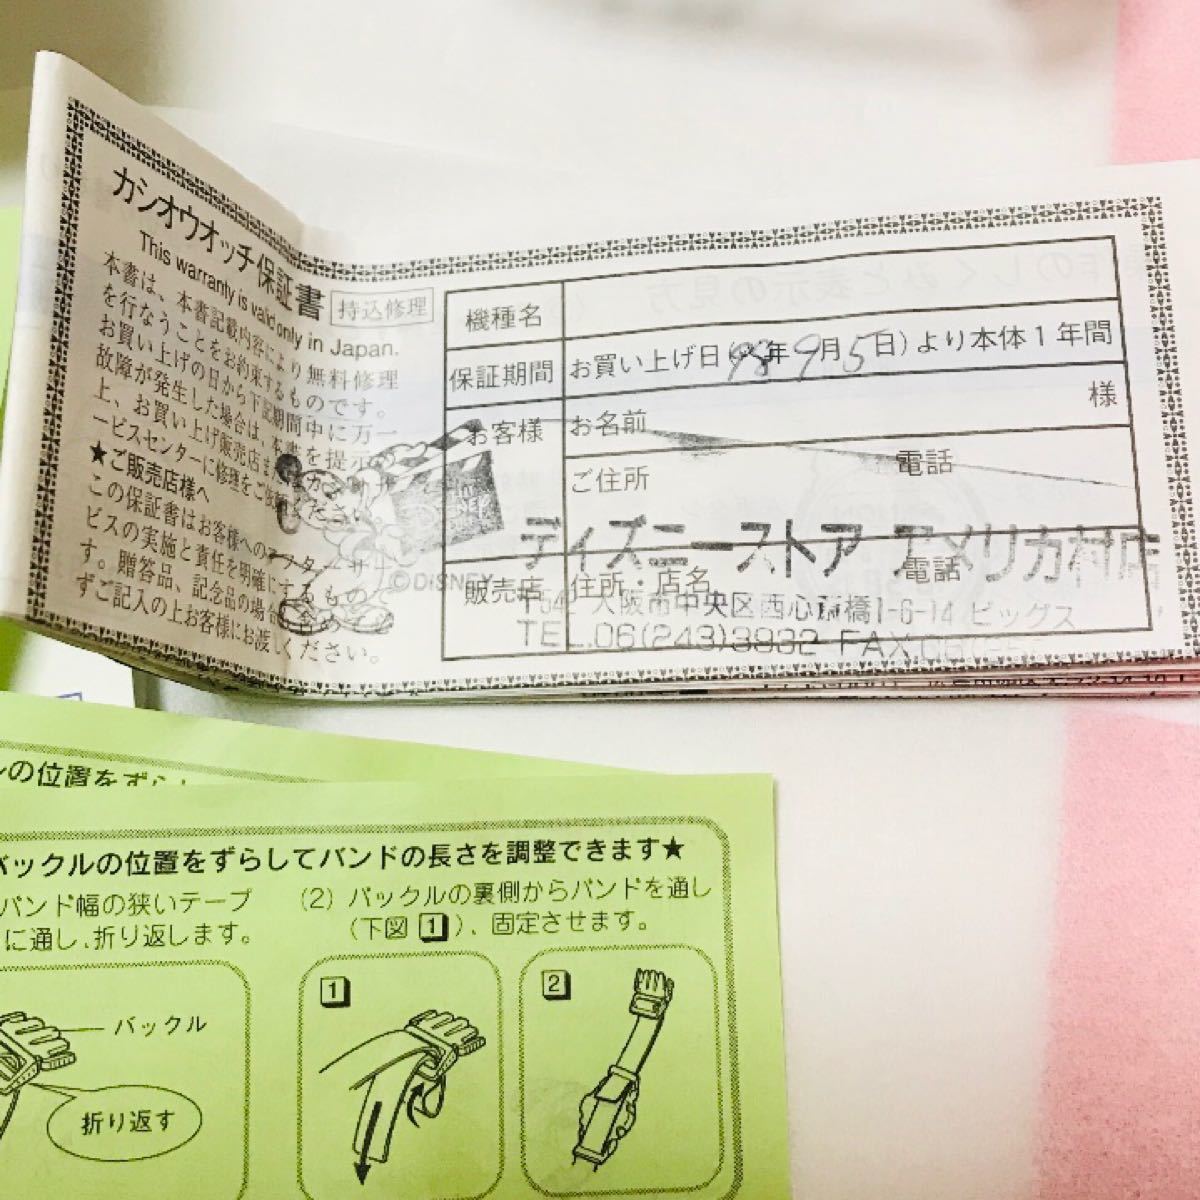 カシオウオッチ保証書
持込修理
This warranty is valid only in Japan.
本書は、本書記載内容により無料修理
を行なうことをお約束するものです。
お買い上げの日から下記期間中に万一
故障が発生した場合は、本書を提示の
上、お買い上げ販売店またはカシオサ
ービスセンターに修理をご依頼ください。
★ご販売店様へ
この保証書はお客様へのアフターサー
ビスの実施と責任を明確にするもので
す。贈答品、記念品の場合も含めて必
ずご記入の上お客様にお渡しください。
©DISNEY
機種名
保証期間 お買い上げ日(98年9月5日)より本体1年間
お客様 お名前 様
ご住所 電話
ディズニーストア アメリカ村店
販売店 住所・店名 電話
〒542 大阪市中央区西心斎橋1-6-14 ビッグス
TEL.06(243)3932 FAX.06
の位置をずら
バックルの位置をずらしてバンドの長さを調整できます★
バンド幅の狭いテープ
に通し、折り返します。
(2) バックルの裏側からバンドを通し
(下図1)、固定させます。
バックル
折り返す
1
2